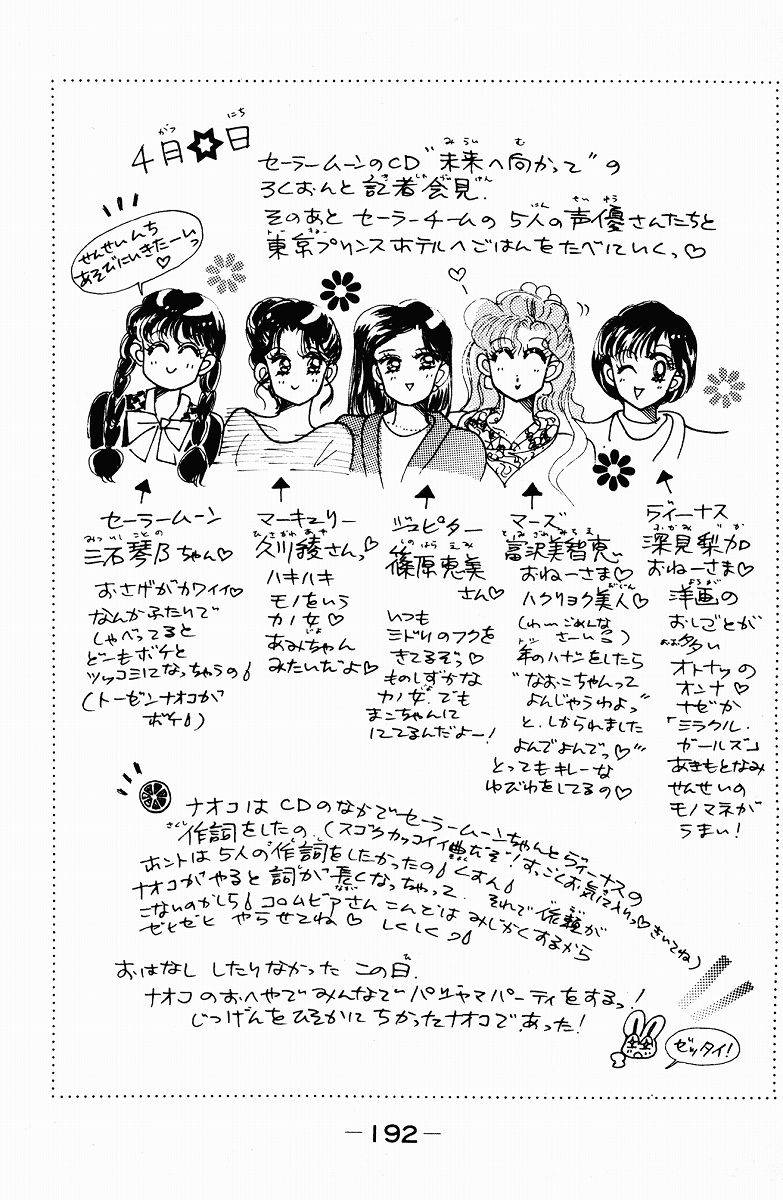 4月★日
セーラームーンのCD“未来へ向かって”の
ろくおんと記者会見.
そのあと セーラーチームの 5人の声優さんたちと
東京プリンスホテルへごはんをたべにいくっ♡
せんせいんち
あそびにいきたーいっ
♡
セーラームーン
三石琴乃ちゃん♡
おさげがカワイイ♡
なんかふたりで
しゃべってると
どーもボケと
ツッコミになっちゃうの
(トーゼンナオコが
ボケ)
マーキュリー
久川綾さんっ
ハキハキ
モノをいう
カノ女♡
あみちゃん
みたいだよ♡
ジュピター
篠原恵美
さん♡
いつも
ミドリのフクを
きてるぞっ♡
ものしずかな
カノ女.でも
まこちゃんに
にてるんだよー!
マーズ
富沢美智恵
おねーさま♡
ハクリョク美人♡
(わ…ごめんな
さーいる)
年のハナシをしたら
“なおこちゃんって
よんじゃうわよっ”
と、しかられました
よんでよんでっ♡
とってもキレーな
ゆびわをしてるの♡
ヴィーナス
深見梨加
おねーさま♡
洋画の
おしごとが
多い
オトナッの
オンナ♡
ナゼか
「ミラクル・
ガールズ」
あきもとなみ
せんせいの
モノマネが
うまい!
ナオコはCDのなかでセーラームーンちゃんとヴィーナスの
作詞をしたの.(スゴクカッコイイ曲だぞ!すっごくお気に入りっ♡きいてね)
ホントは5人の作詞をしたかったの くすん
ナオコがやると詞が長くなっちゃって それで依頼が
こないのかしら コロムビアさん こんどは みじかくするから
ゼヒゼヒ やらせてね♡ しくしく
おはなし したりなかった この日.
ナオコのおへやでみんなでパジャマパーティをするっ!
じつげんをひそかに ちかったナオコであった!
ゼッタイ!
—192—